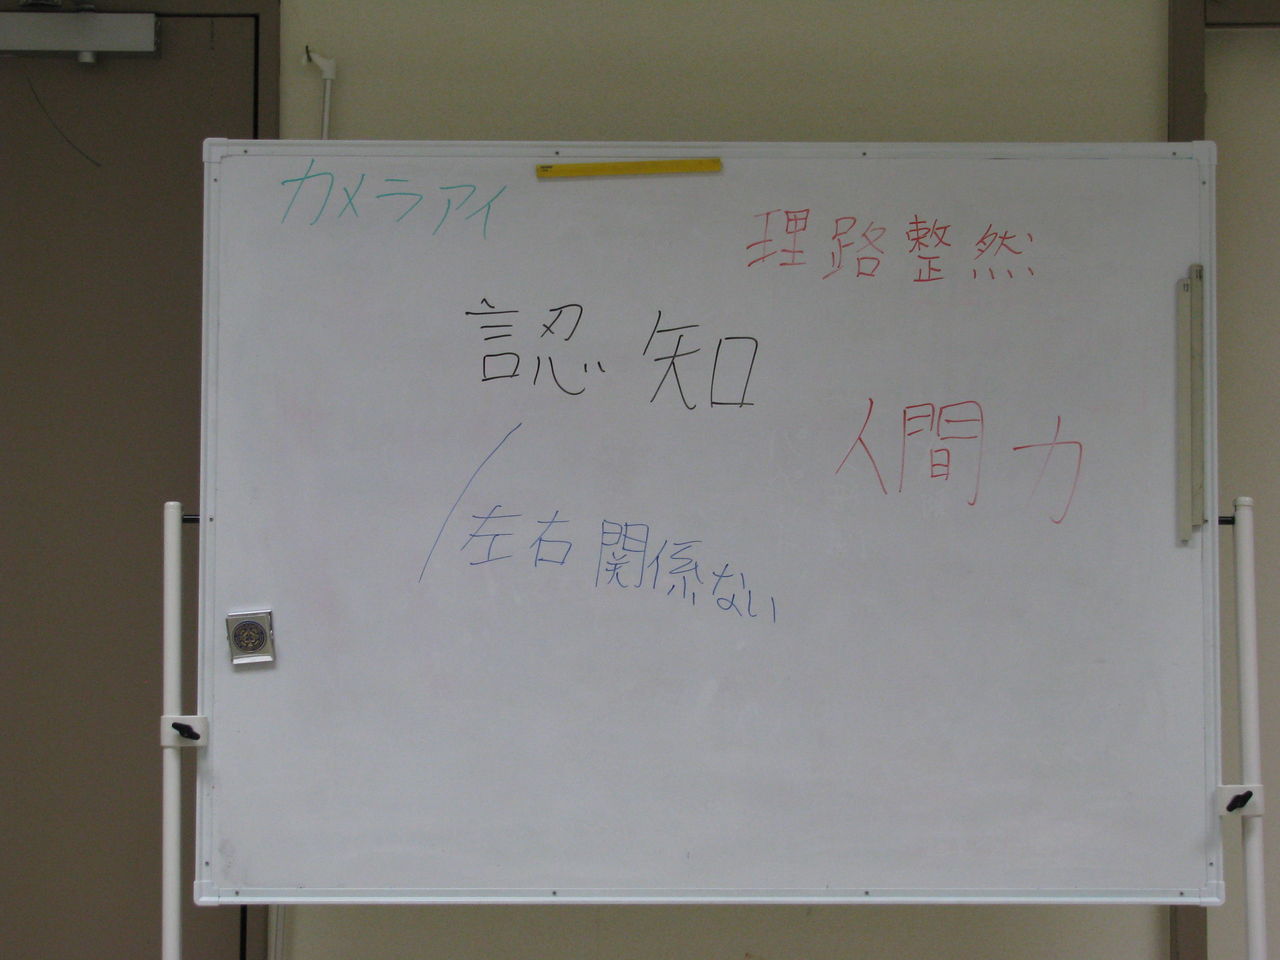 カメラアイ
理路整然
認知
人間力
左右関係ない